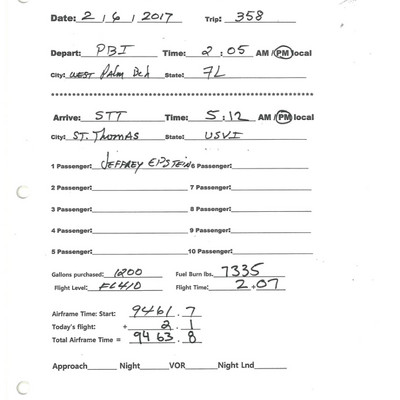 Date: 2 / 6 / 2017 Trip: 358
Depart: PBI Time: 2 : 05 AM / PM local
City: WEST Palm Bch State: FL
Arrive: STT Time: 5 : 12 AM / PM local
City: ST. THOMAS State: USVI
1 Passenger: JEFFREY EPSTEIN 6 Passenger:
2 Passenger: 7 Passenger:
3 Passenger: 8 Passenger:
4 Passenger: 9 Passenger:
5 Passenger: 10 Passenger:
Gallons purchased: 1200 Fuel Burn lbs. 7335
Flight Level: FL410 Flight Time: 2+07
Airframe Time: Start: 9461 . 7
Today's flight: + 2 . 1
Total Airframe Time = 9463 . 8
Approach Night VOR Night Lnd